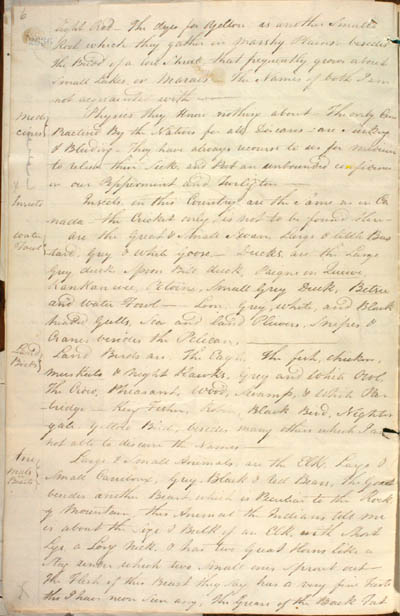 6
light Red – The dyes for Yellow is another Smaller
Root which they gather in Marshy Plains besides
the Buds of a low Shrub that frequently grows about
Small Lakes, or Marais – The Names of both I am
not acquainted with –
Medi
cines
Physics they know nothing about – The only Cure
Practiced By the Natives for all Diseases – are Sucking
& Bleeding – They have always recourse to us for medicine
to relieve their Sick, and Put an unbounded confidence
in our Peppermint and Turlington –
Insects
Insects, in this Country are the same as in Ca
nada – the Cricket only is not to be found There
Water
Fowl
are the Great & Small Swan, Large & little Bus
tard, Grey & White Goose – Ducks are the Large
Grey duck Spoon Bill duck,
Small Grey Duck,
and Water Fowl – Loon, Grey, White, and Black
headed Gulls, Sea and Land Plovers, Snipes &
Cranes besides the Pelican, –
Land
Birds
Land Birds are, The Eagle, The fish, chicken,
muskeeto & Night Hawks, Grey and White Owl
The Crow, Pheasants, Wood, Swamp, & White Par
tridge – King Fisher, Robin, Black Bird, Nightin
gale Yellow Bird, besides many others which I am
not able to discern the Names –
Ani
mals
Beasts
Large & Small Animals, are the Elk, Large &
Small Carribou, Grey, Black & Red Bears, the Goat
besides another Beast which is Peculiar to the Rock
y Mountain, this Animal the Indians tell me
is about the Size & Bulk of an Elk, with Short
Legs, a Long Neck, & has two Great Horns like a
Stag under which two Small ones Sprout out –
The Flesh of this Beast they Say has a very fine taste
tho I have never Seen any; The Grease of the Back Fat